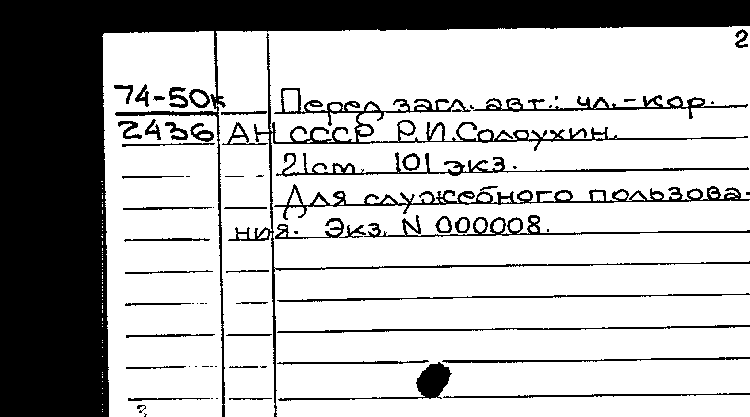 2
74-50к Перед загл. авт.: чл.-кор.
2436 АН СССР Р.И.Солоухин.
21ст. 101 экз.
Для служебного пользова-
ния. Экз. N 000008.
3